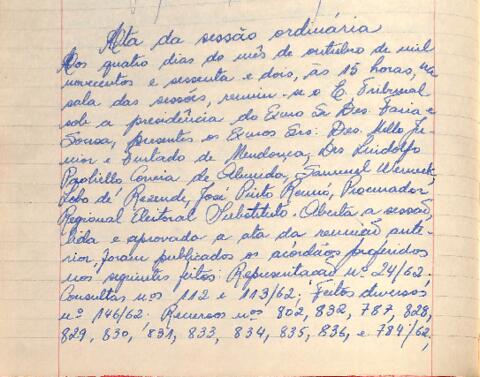 Ata da sessão ordinária
Aos quatro dias do mês de outubro de mil
novecentos e sessenta e dois, às 15 horas, na
sala das sessões, reuniu-se o E. Tribunal
sob a presidência do Exmo Sr Des. Faria e
Sousa, presentes os Exmos Srs: Des. Mello Jú-
nior e Furtado de Mendonça, Drs Lindolfo
Paoliello, Correia de Almeida, Sammuel Werneck,
Lobo de Rezende, José Pinto Renno, Procurador
Regional Eleitoral Substituto. Aberta a sessão,
lida e aprovada a ata da reunião ante-
rior, foram publicados os acórdãos proferidos
nos seguintes feitos: Representação nº 24/62.
Consultas nos 112 e 113/62; Feitos diversos
nº 146/62. Recursos nos 802, 832, 787, 828,
829, 830, 831, 833, 834, 835, 836, e 784/62,